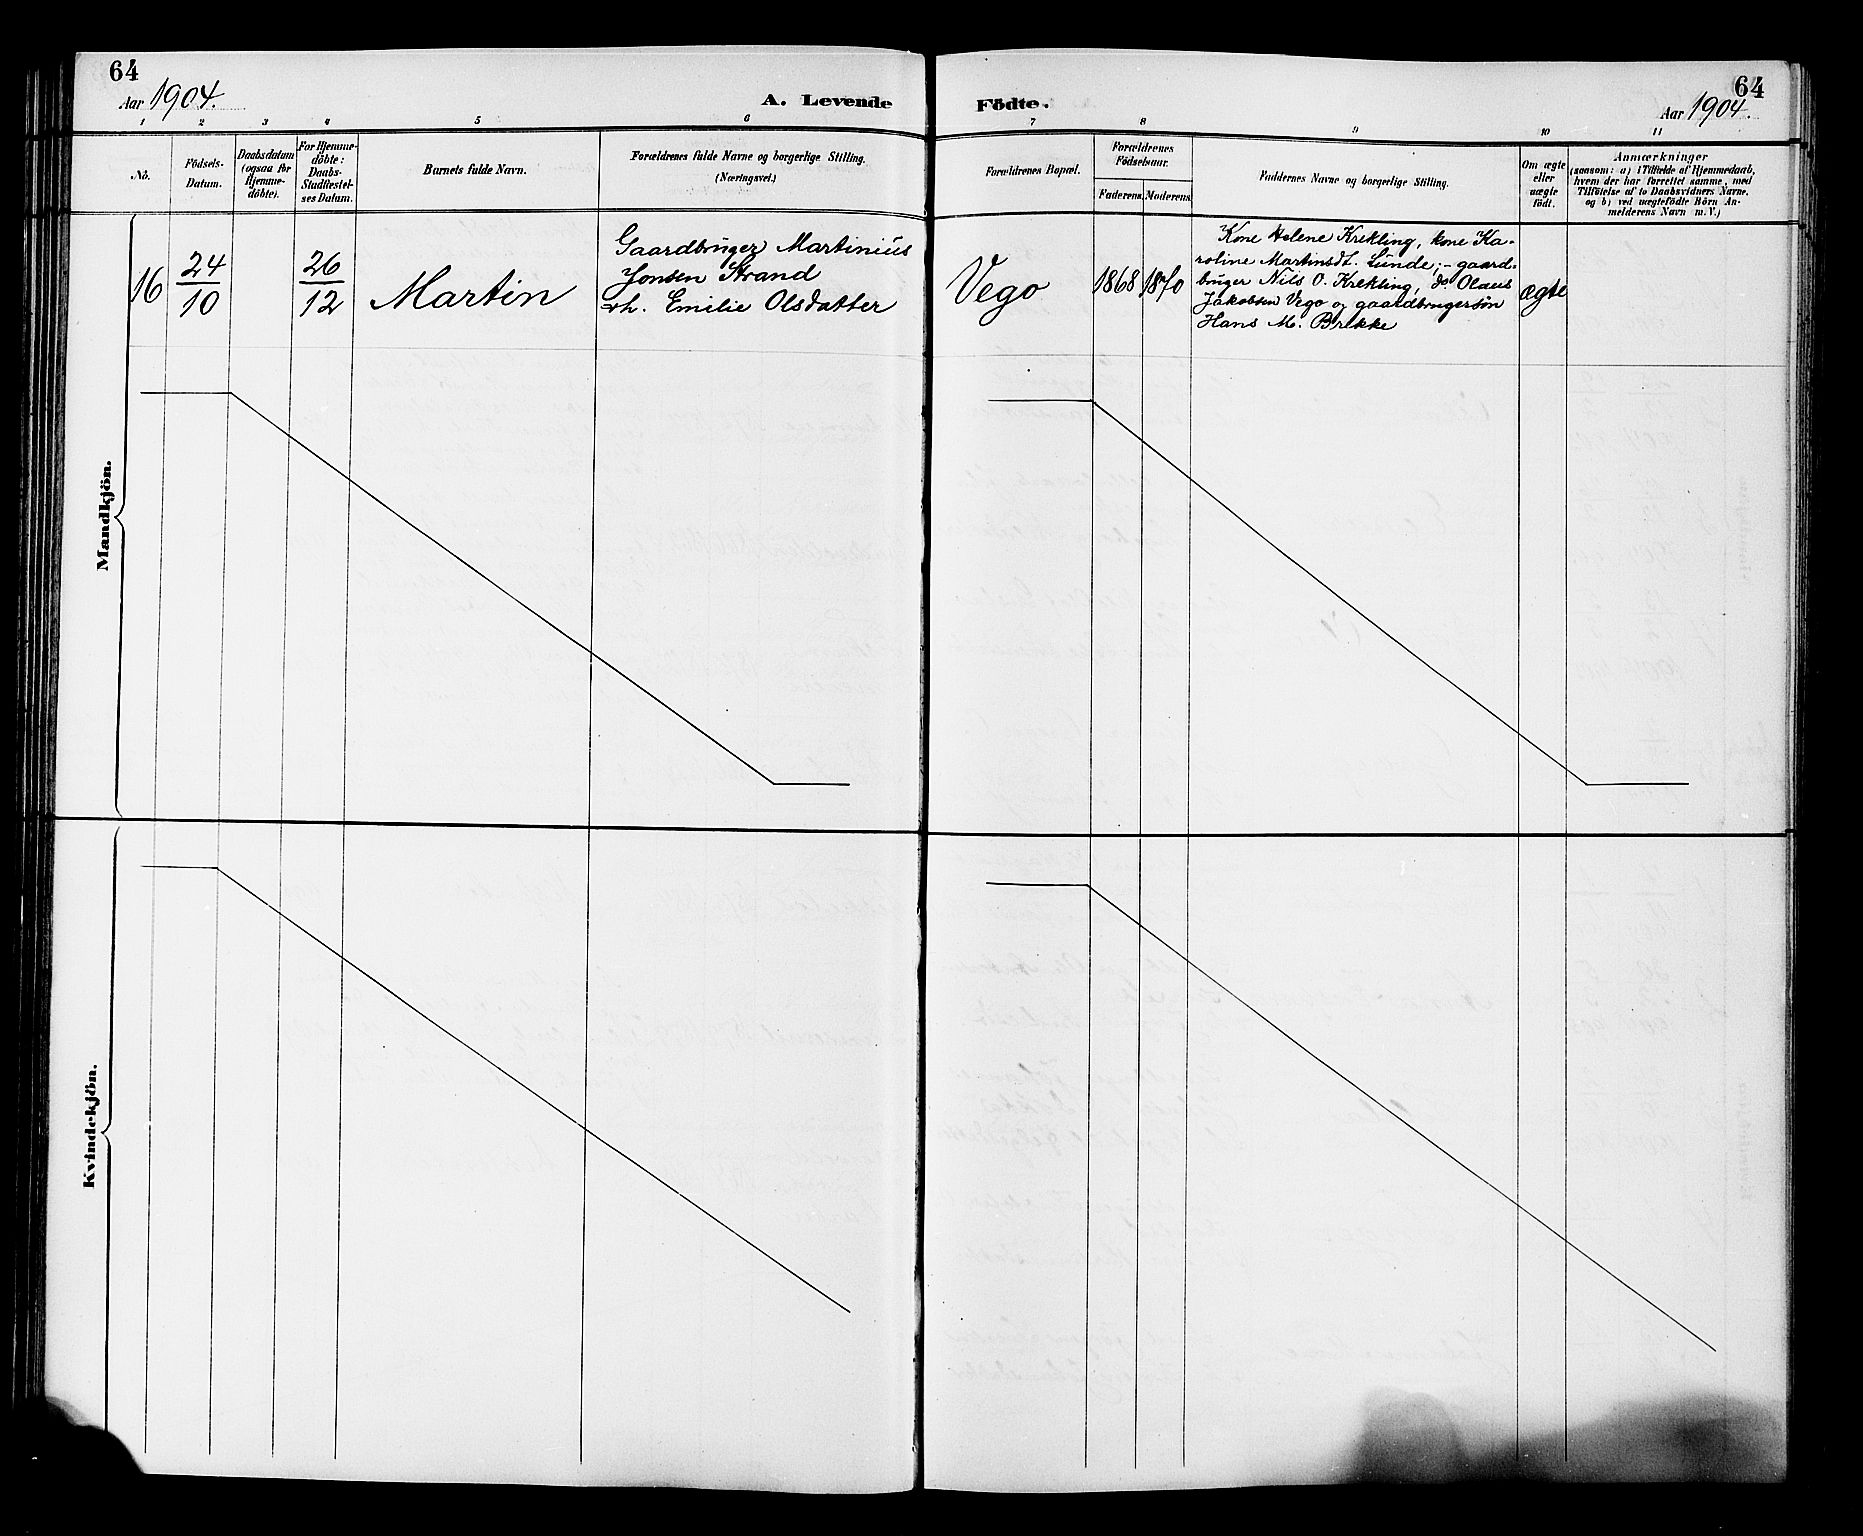 64
Aar 1904.
A. Levende
1 2 3 4 5 6
No.
Födsels-
Datum.
Daabsdatum
(ogsaa for
Hjemme-
döbte).
For Hjemme-
döbte:
Daabs-
Stadfæstel-
ses Datum.
Barnets fulde Navn.
Forældrenes fulde Navne og borgerlige Stilling.
(Næringsvei.)
Mandkjön.
16
24/10
26/12
Martin
Gaardbruger Martinius
Jonsen Strand
h. Emilie Olsdatter
Kvindekjön.
64
Aar 1904.
Födte.
7 8 9 10 11
Forældrenes Bopæl.
Forældrenes
Födselsaar.
Faderens. Moderens.
Faddernes Navne og borgerlige Stilling.
Om ægte
eller
uægte
födt.
Anmærkninger
(saasom: a) i Tilfælde af Hjemmedaab,
hvem der har forrettet samme, med
Tilföielse af to Daabsvidners Navne,
og b) ved uægtefödte Börn An-
melderens Navn m. V.)
Vego
1868
1870
Kone Helene Krekling, kone Ka-
roline Martinsdt. Lunde; - gaard-
bruger Nils O. Krekling, do Olaus
Jakobsen Vego og gaardbrugersøn
Hans M. Brekke
ægte